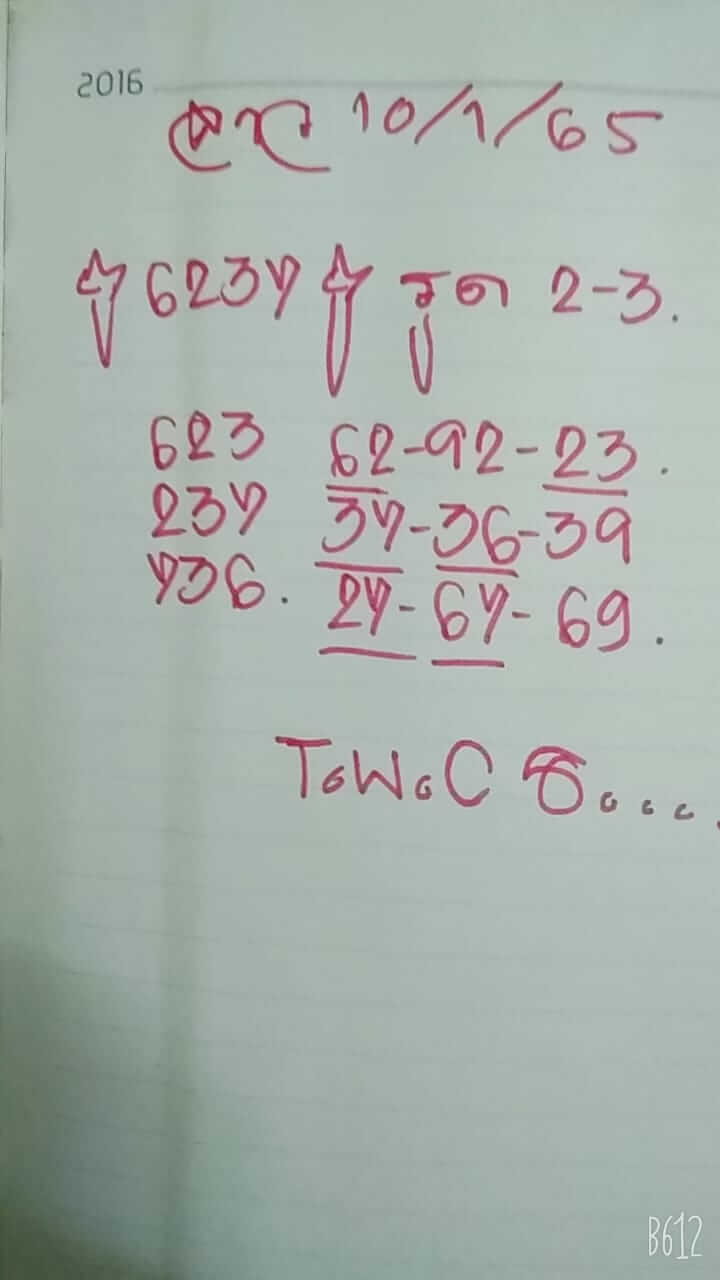 2016
ลาว 10/1/65
6237 รูด 2-3.
623 62-92-23.
237 37-36-39
736. 27-67-69.
T.W.C ธ....
B612